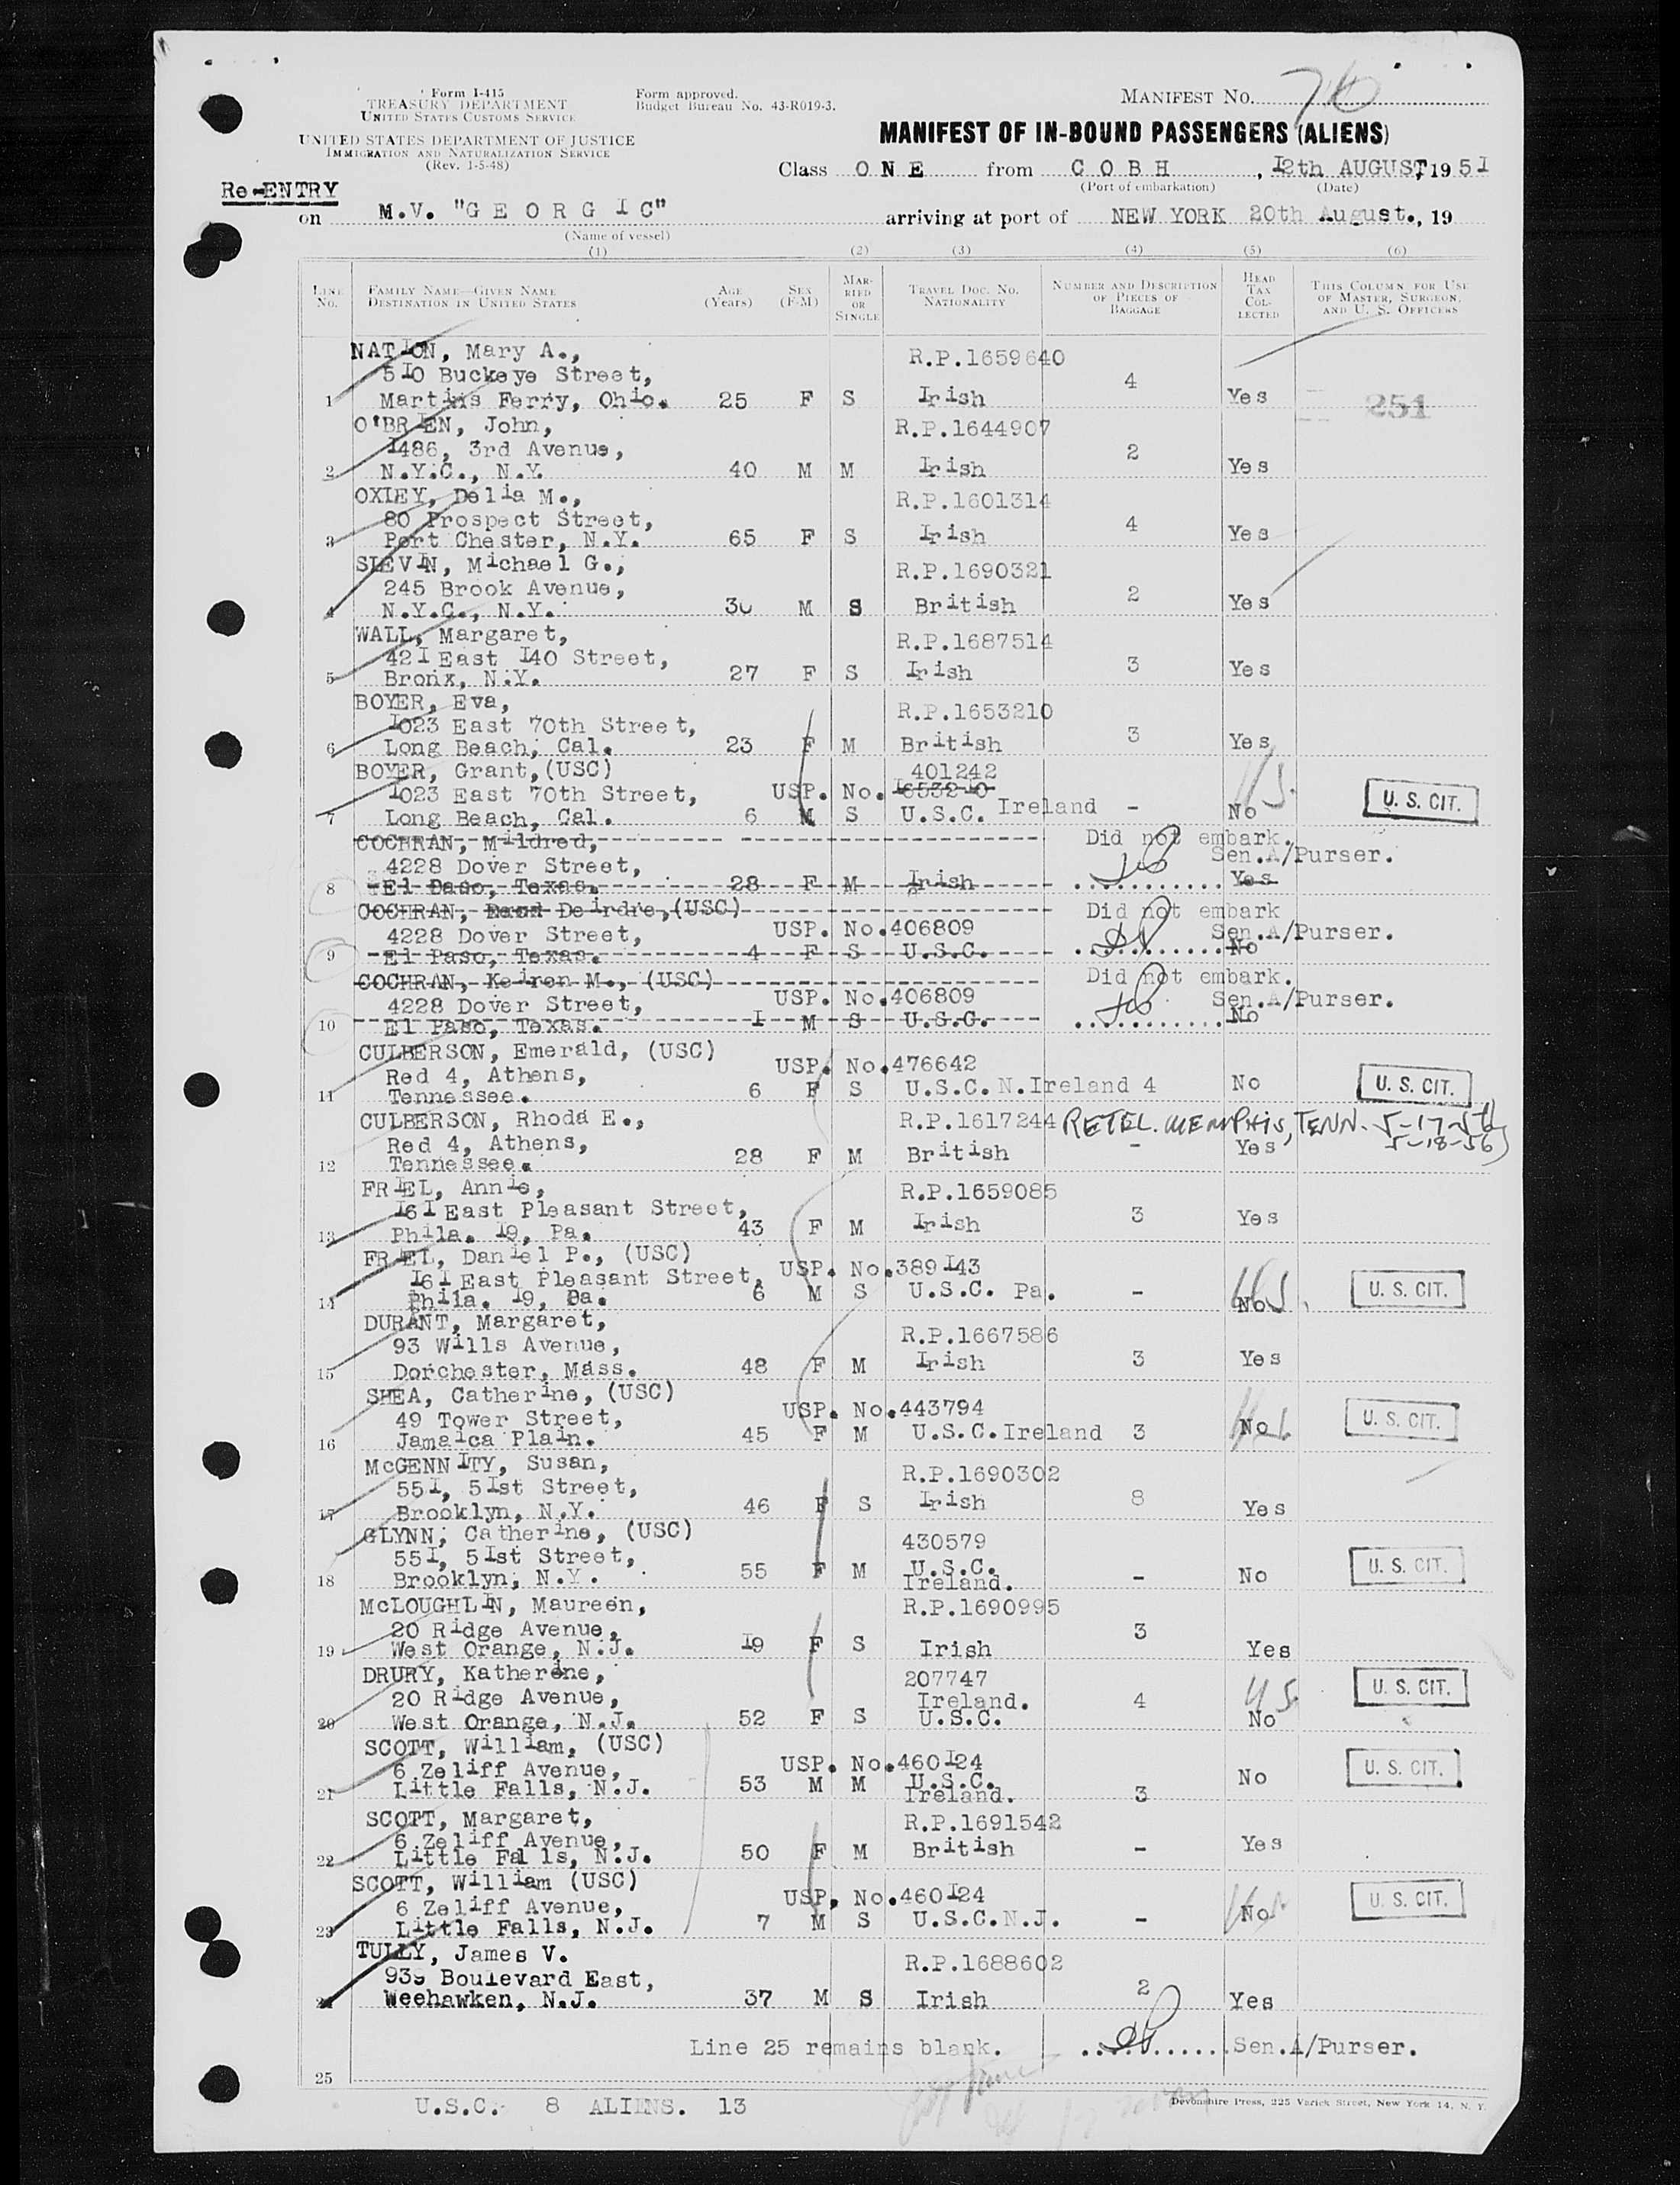 Form I-415
TREASURY DEPARTMENT
UNITED STATES CUSTOMS SERVICE
UNITED STATES DEPARTMENT OF JUSTICE
IMMIGRATION AND NATURALIZATION SERVICE
(Rev. 1-5-48)
Form approved.
Budget Bureau No. 43-R019-3.
MANIFEST NO. 76
MANIFEST OF IN-BOUND PASSENGERS (ALIENS)
Class ONE from COBH, 12th AUGUST, 1951
(Port of embarkation) (Date)
Re-ENTRY
on M.V. "GEORGIC" arriving at port of NEW YORK 20th August., 19
(Name of vessel)
(1) (2) (3) (4) (5) (6)
LINE No. FAMILY NAME—GIVEN NAME DESTINATION IN UNITED STATES AGE (Years) SEX (F-M) MARRIED OR SINGLE TRAVEL DOC. NO. NATIONALITY NUMBER AND DESCRIPTION OF PIECES OF BAGGAGE HEAD TAX COLLECTED THIS COLUMN FOR USE OF MASTER, SURGEON, AND U. S. OFFICERS
NATION, Mary A., R.P.1659640
510 Buckeye Street, 4
1 Martins Ferry, Ohio. 25 F S Irish Yes 251
O'BRIEN, John, R.P.1644907
1486, 3rd Avenue, 2
2 N.Y.C., N.Y. 40 M M Irish Yes
OXLEY, Delia M., R.P.1601314
80 Prospect Street, 4
3 Port Chester, N.Y. 65 F S Irish Yes
SLEVIN, Michael G., R.P.1690321
245 Brook Avenue, 2
4 N.Y.C., N.Y. 30 M S British Yes
WALL, Margaret, R.P.1687514
421 East 140 Street, 3
5 Bronx, N.Y. 27 F S Irish Yes
BOYER, Eva, R.P.1653210
1023 East 70th Street, 3
6 Long Beach, Cal. 23 F M British Yes
BOYER, Grant, (USC) 401242
1023 East 70th Street, USP. No. 1653210 U.S.
7 Long Beach, Cal. 6 M S U.S.C. Ireland - No U. S. CIT.
COCHRAN, Mildred, Did not embark.
4228 Dover Street, Sen.A/Purser.
8 El Paso, Texas. 28 F M Irish Yes
COCHRAN, Deirdre, (USC) Did not embark
4228 Dover Street, USP. No.406809 Sen.A/Purser.
9 El Paso, Texas. 4 F S U.S.C. No
COCHRAN, Keiron M., (USC) Did not embark.
4228 Dover Street, USP. No.406809 Sen.A/Purser.
10 El Paso, Texas. 1 M S U.S.C. No
CULBERSON, Emerald, (USC) USP. No.476642
Red 4, Athens,
11 Tennessee. 6 F S U.S.C. N.Ireland 4 No U. S. CIT.
CULBERSON, Rhoda E., R.P.1617244 RETEL. MEMPHIS, TENN. 5-17-56
Red 4, Athens, 5-18-56
12 Tennessee. 28 F M British - Yes
FRIEL, Annie, R.P.1659085
161 East Pleasant Street, 3
13 Phila. 19, Pa. 43 F M Irish Yes
FRIEL, Daniel P., (USC) USP. No.389143
161 East Pleasant Street,
14 Phila. 19, Pa. 6 M S U.S.C. Pa. - No U.S. U. S. CIT.
DURANT, Margaret, R.P.1667586
93 Wills Avenue,
15 Dorchester, Mass. 48 F M Irish 3 Yes
SHEA, Catherine, (USC) USP. No.443794
49 Tower Street,
16 Jamaica Plain. 45 F M U.S.C. Ireland 3 No U. S. CIT.
McGENNITY, Susan, R.P.1690302
551, 51st Street,
17 Brooklyn, N.Y. 46 F S Irish 8 Yes
GLYNN, Catherine, (USC) 430579
551, 51st Street, U.S.C.
18 Brooklyn, N.Y. 55 F M Ireland. - No U. S. CIT.
McLOUGHLIN, Maureen, R.P.1690995
20 Ridge Avenue, 3
19 West Orange, N.J. 19 F S Irish Yes
DRURY, Katherine, 207747
20 Ridge Avenue, Ireland. 4 U.S. U. S. CIT.
20 West Orange, N.J. 52 F S U.S.C. No
SCOTT, William, (USC) USP. No.460124
6 Zeliff Avenue, U.S.C.
21 Little Falls, N.J. 53 M M Ireland. 3 No U. S. CIT.
SCOTT, Margaret, R.P.1691542
6 Zeliff Avenue,
22 Little Falls, N.J. 50 F M British - Yes
SCOTT, William (USC) USP. No.460124
6 Zeliff Avenue,
23 Little Falls, N.J. 7 M S U.S.C. N.J. - No U. S. CIT.
TULLY, James V. R.P.1688602
939 Boulevard East, 2
24 Weehawken, N.J. 37 M S Irish Yes
Line 25 remains blank. Sen.A/Purser.
25
U.S.C. 8 ALIENS. 13
Devonshire Press, 225 Varick Street, New York 14, N. Y.